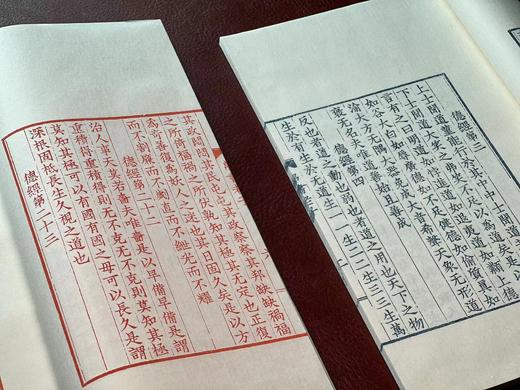 德經第三
上士聞道堇能行於其中中士聞道
下士聞道大笑之弗大笑不足以為道
言有之曰明道如費進道如退夷道如
如谷大白如辱廣德如不足建德如偷質真如
渝大方无隅大器免成大音希聲天象无形道
褒无名夫唯道善始且善成
德經第四
反也者道之動也弱也者道之用也天下之物
生於有生於无道生一一生二二生三三生萬
其政閔閔其民屯屯其政察察其邦缺缺禍福
之所倚福禍之所伏孰知其極其无定也正復
為奇善復為妖人之迷也其日固久矣是以方
而不割廉而不刺直而不紲光而不耀
德經第二十二
治人事天莫若嗇夫唯嗇是以早備早備是謂
重積得重積得則无不克无不克則莫知其極
莫知其極可以有國有國之母可以長久是謂
深根固柢長生久視之道也
德經第二十三